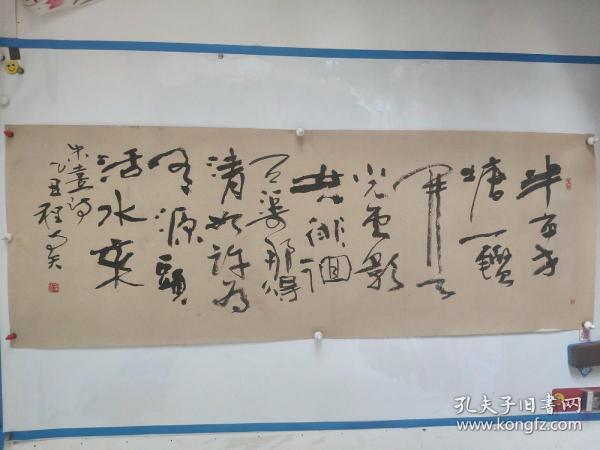 半亩方
塘一鑑
开天
光雲影
共徘徊
问渠那得
清如许为
有源頭
活水来
朱熹诗
乙丑程
孔夫子旧书网
www.kongfz.com